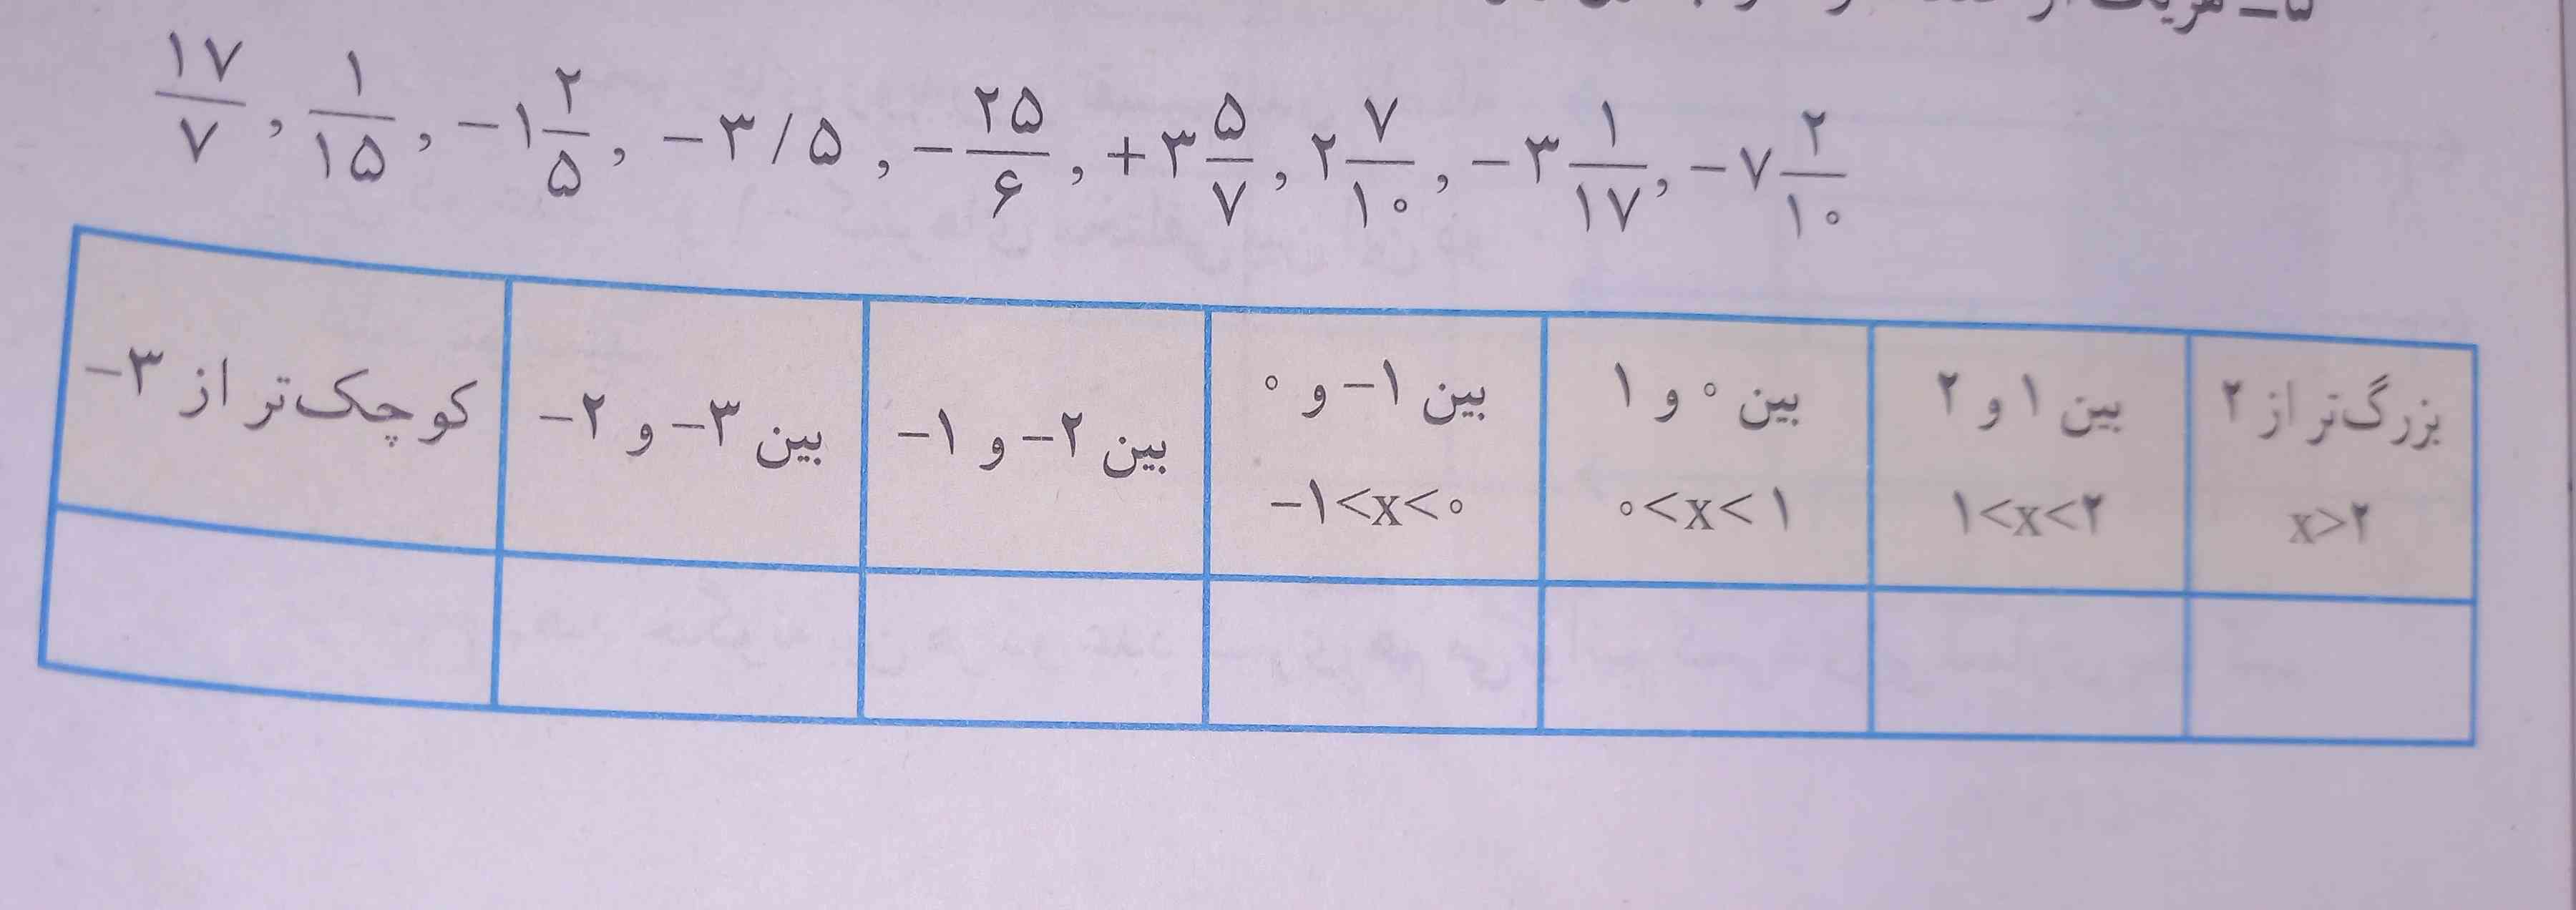 ۵ـ هریک از
۱۷/۷ , ۱/۱۵ , −۱ ۲/۵ , −۳/۵ , −۲۵/۶ , +۳ ۵/۷ , ۲ ۷/۱۰ , −۳ ۱/۱۷ , −۷ ۲/۱۰
بزرگ‌تر از ۲
x>۲
بین ۱ و ۲
۱<x<۲
بین ۰ و ۱
۰<x<۱
بین ۱− و ۰
−۱<x<۰
بین ۲− و ۱−
بین ۳− و ۲−
کوچک‌تر از ۳−